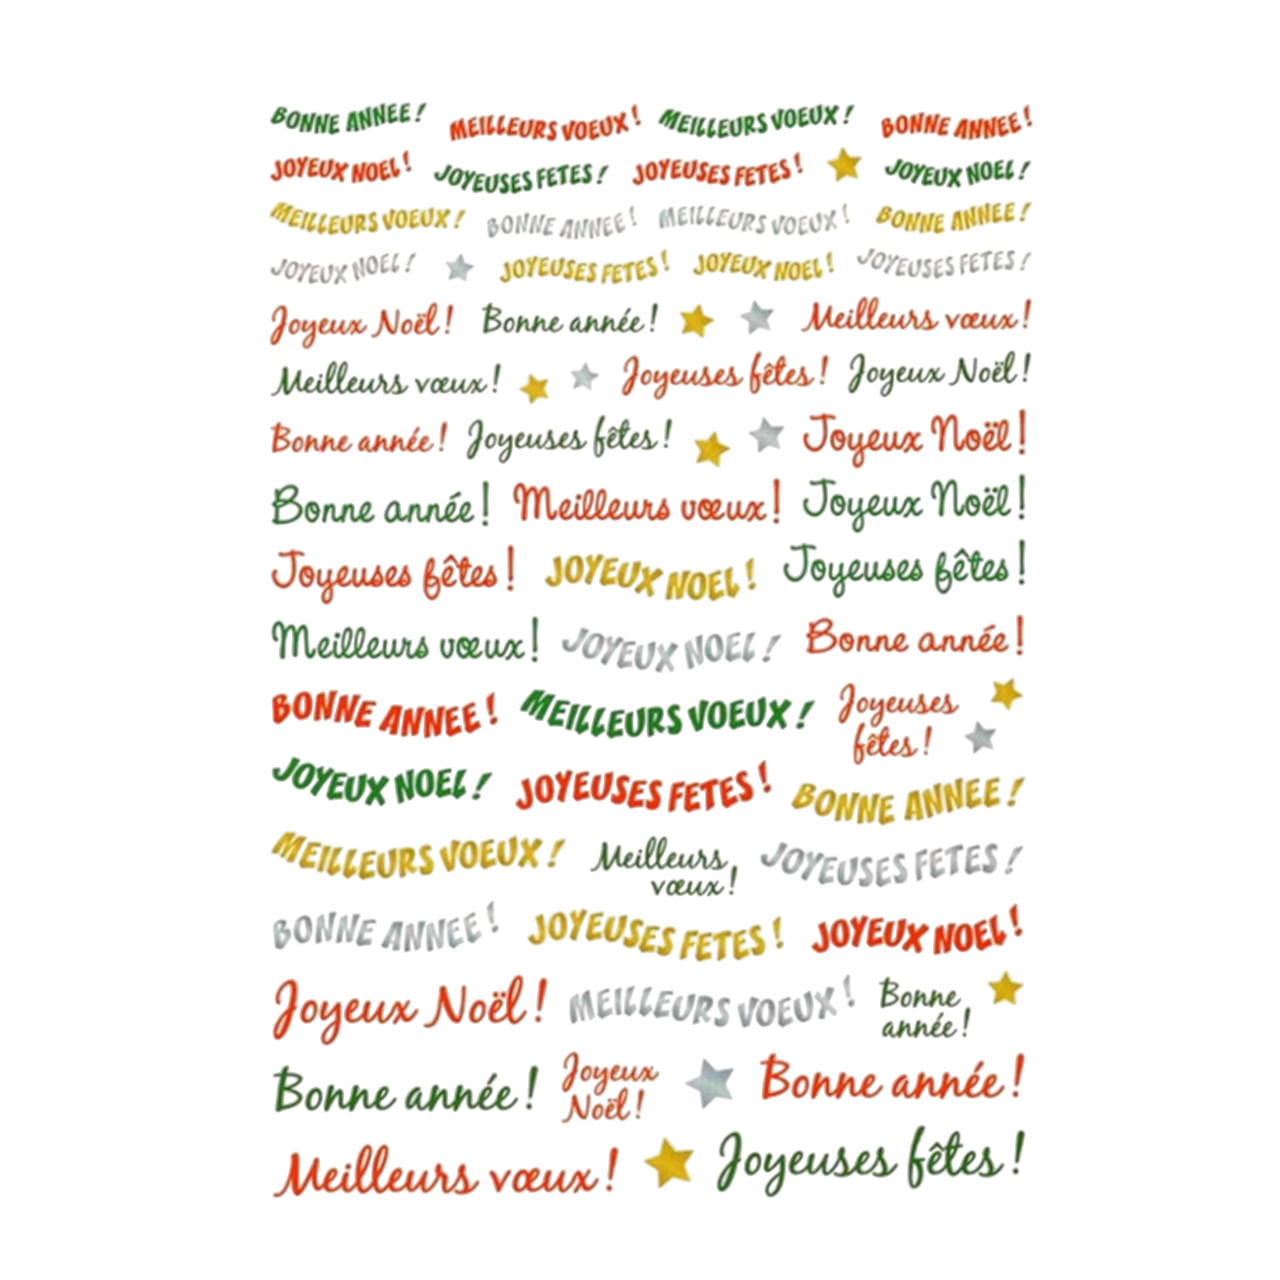 BONNE ANNEE ! MEILLEURS VOEUX ! MEILLEURS VOEUX ! BONNE ANNEE !
JOYEUX NOEL ! JOYEUSES FETES ! JOYEUSES FETES ! JOYEUX NOEL !
MEILLEURS VOEUX ! BONNE ANNEE ! MEILLEURS VOEUX ! BONNE ANNEE !
JOYEUX NOEL ! JOYEUSES FETES ! JOYEUX NOEL ! JOYEUSES FETES !
Joyeux Noël ! Bonne année ! Meilleurs vœux !
Meilleurs vœux ! Joyeuses fêtes ! Joyeux Noël !
Bonne année ! Joyeuses fêtes ! Joyeux Noël !
Bonne année ! Meilleurs vœux ! Joyeux Noël !
Joyeuses fêtes ! JOYEUX NOEL ! Joyeuses fêtes !
Meilleurs vœux ! JOYEUX NOEL ! Bonne année !
BONNE ANNEE ! MEILLEURS VOEUX ! Joyeuses
fêtes !
JOYEUX NOEL ! JOYEUSES FETES ! BONNE ANNEE !
MEILLEURS VOEUX ! Meilleurs
vœux ! JOYEUSES FETES !
BONNE ANNEE ! JOYEUSES FETES ! JOYEUX NOEL !
Joyeux Noël ! MEILLEURS VOEUX ! Bonne
année !
Bonne année ! Joyeux
Noël ! Bonne année !
Meilleurs vœux ! Joyeuses fêtes !